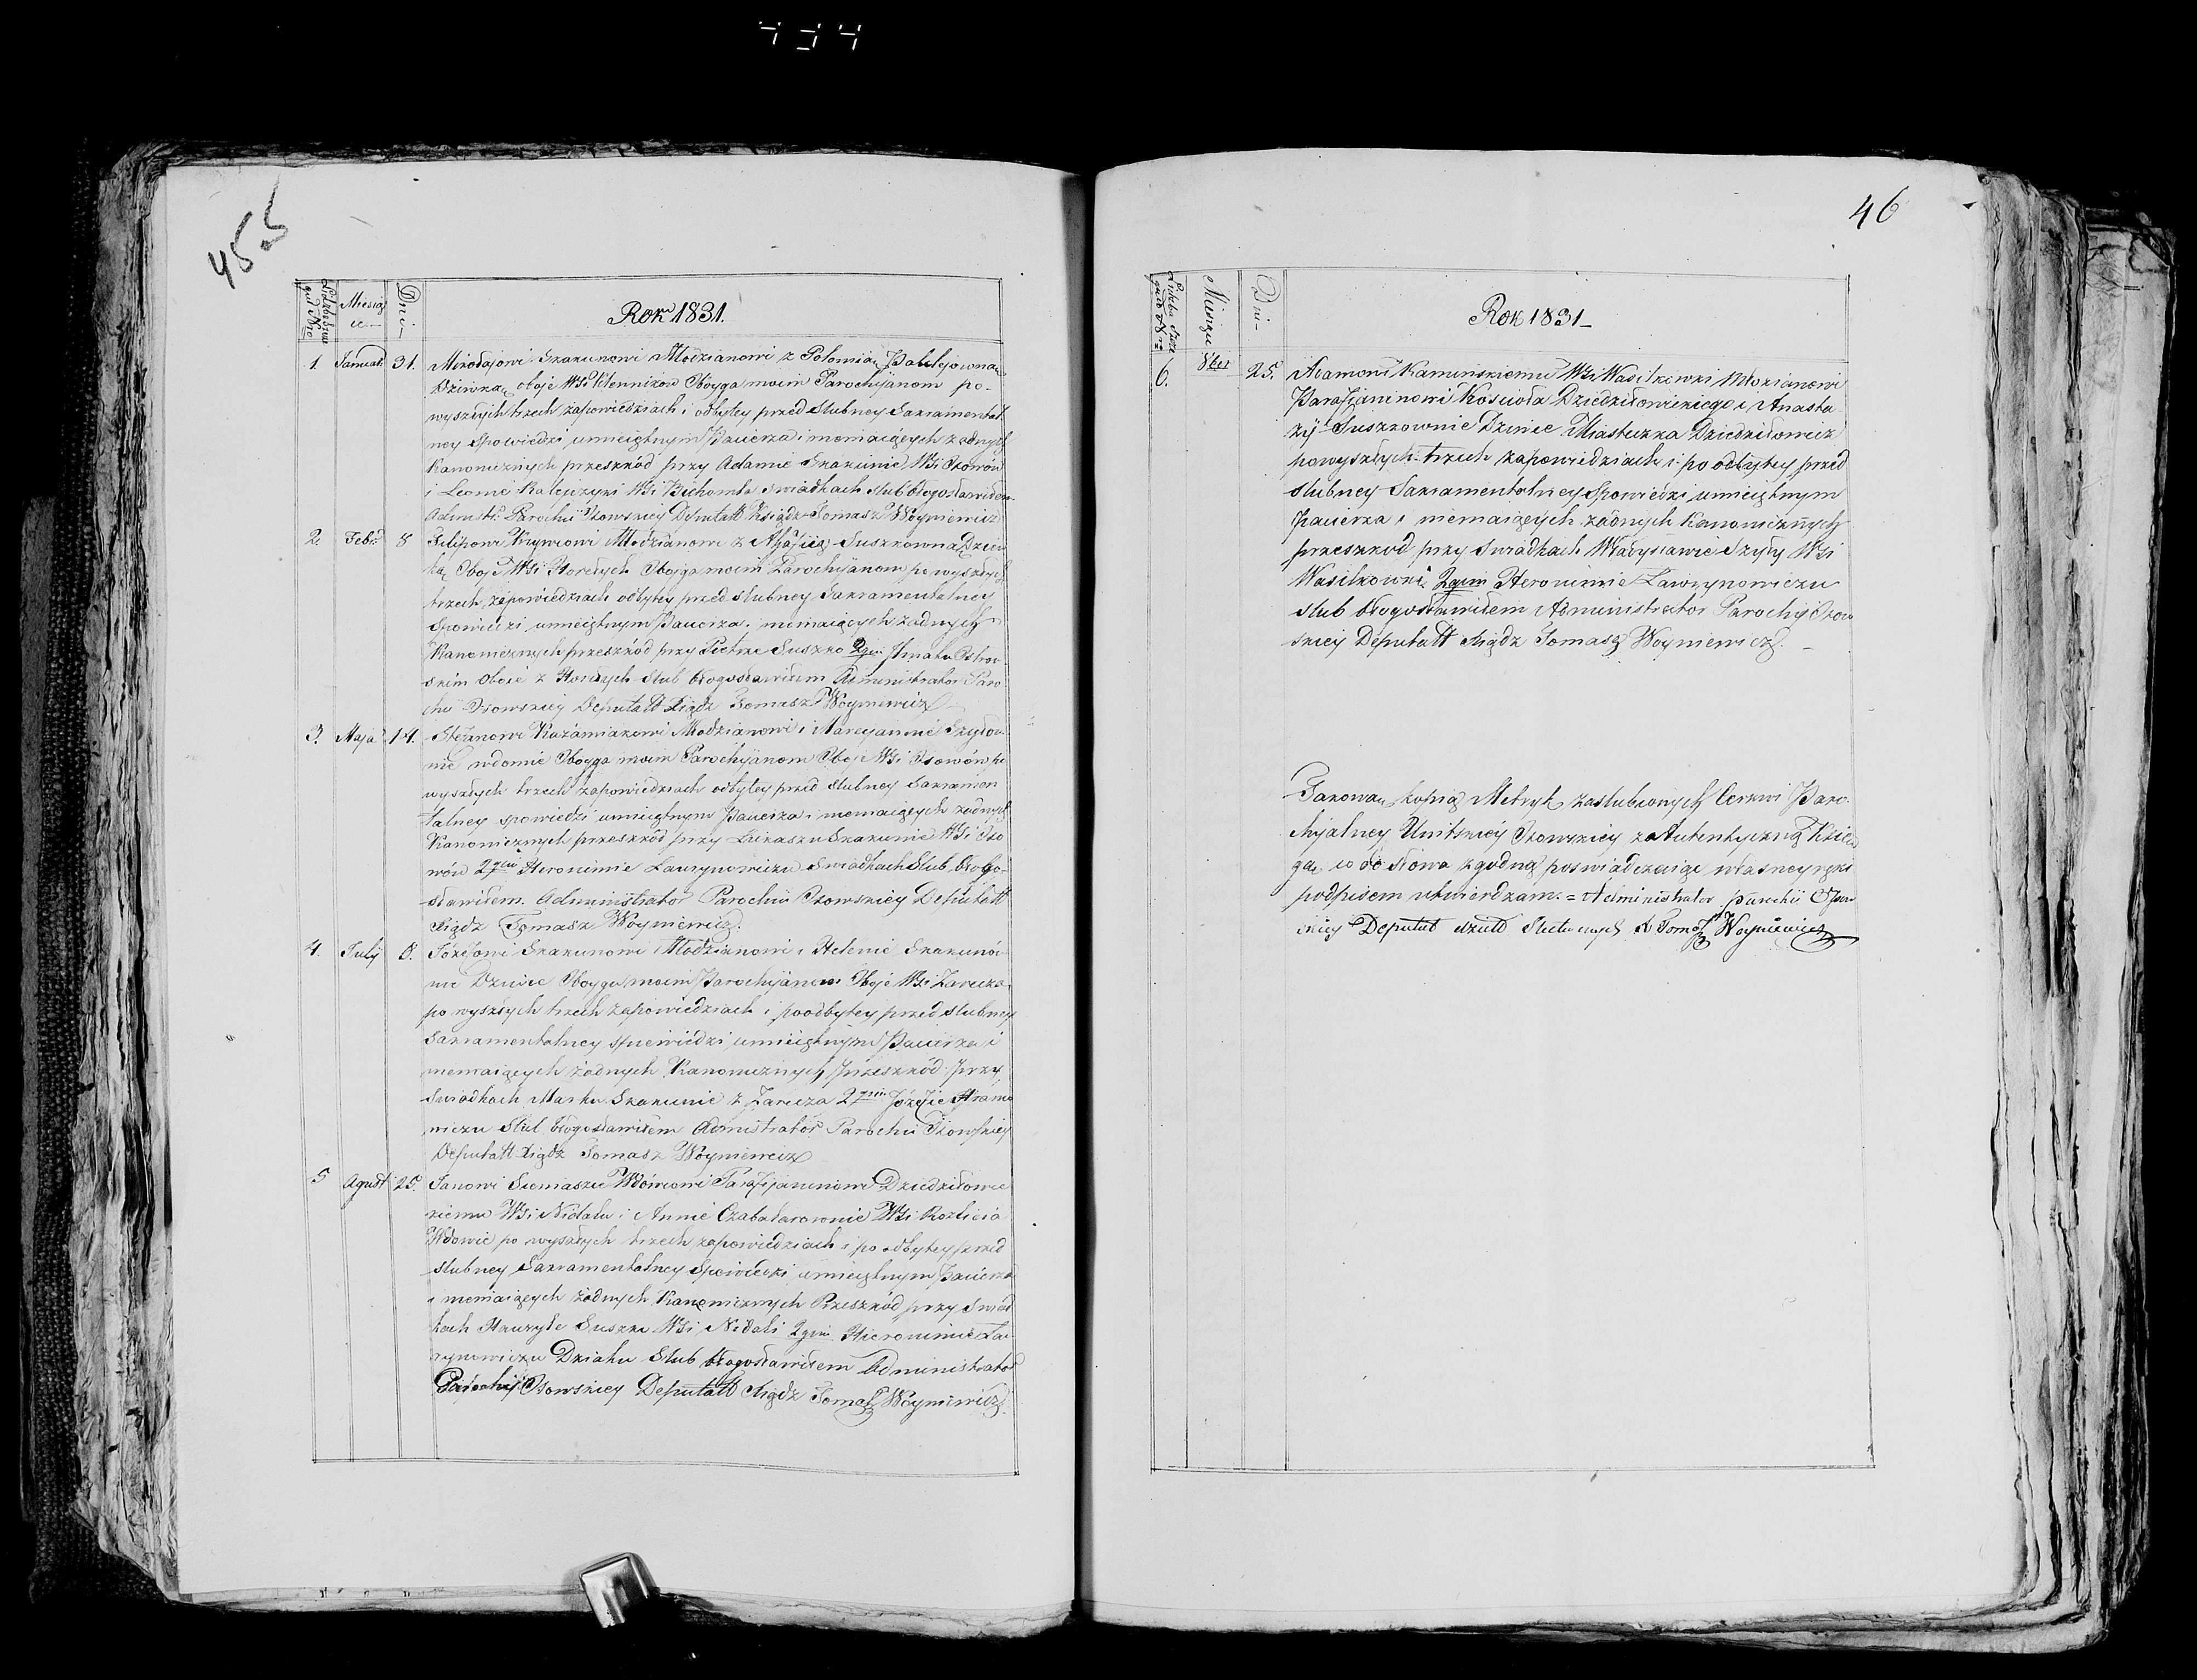 46
Miesiąc
Dni
Rok 1831.
1. Januar. 31. Mikołajowi Skakunowi Młodzianowi z Połonią
Dziewką oboje Wsi Oboyga moim Parochijanom po
wyszłych trzech zapowiedziach i odbytey przed Slubney Sakramental
ney Spowiedzi umieiętnym Pacierza i niemaiących żadnych
Kanonicznych przeszkód przy Adamie Skakunie Wsi Osowów
i Leonie Wsi swiadkach slub błogosławiłem
Administ. Parochii Osowskiey Deputatt Xsiądz Tomasz Woyniewicz
2. Febr. 8 Filipowi Młodzianowi z Suszkowną Dziew
ką Oboje Wsi Horodych Obojga moim Parochijanom po wyszłych
trzech zapowiedziach odbytey przed slubney Sakramentalney
Spowiedzi umieiętnym Pacierza, niemaiących żadnych
Kanonicznych przeszkód przy Pietrze Suszko 2gim Ostrow
skim oboie z Horodych slub błogosławiłem Administrator Paro
chii Osowskiey Deputatt Xiądz Tomasz Woyniewicz
3. Maja 14. Stefanowi Kaźmiakowi Młodzianowi i Maryannie Szyłow
nie wdowie Oboyga moim Parochijanom Oboje Wsi Osowów po
wyszłych trzech zapowiedziach odbytey przed slubney Sakramen
talney spowiedzi umieiętnym Pacierza i niemaiących żadnych
Kanonicznych przeszkód przy Łukaszu Skakunie Wsi Oso
wów 2gim Heronimie Ławrynowiczu Swiadkach Slub błogo
sławiłem. Administrator Parochii Osowskiey Deputatt
Xiądz Tomasz Woyniewicz.
4. July 6. Józefowi Skakunowi Młodzianowi i Helenie Skakunów
nie Dziewce Oboyga moim Parochijanom Oboje Wsi Zarecza
po wyszłych trzech zapowiedziach i po odbytey przed slubney
Sakramentalney spowiedzi umieiętnym Pacierza i
niemaiących żadnych Kanonicznych przeszkód przy
Swiadkach Marku Skakunie z Zarecza 2gim Józefie
wiczu Slub błogosławiłem Administrator Parochii Osowskiey
Deputatt Xiądz Tomasz Woyniewicz
5 Agust 25. Janowi Siemaszce Wdowcowi Parafijaninowi Dziedziłowic
kiemu Wsi Nidalu i Annie Czabatarownie Wsi
Wdowie po wyszłych trzech zapowiedziach i po odbytey przed
slubney Sakramentalney Spowiedzi umieiętnym Pacierza
i niemaiących żadnych Kanonicznych Przeszkód przy Swiad
kach Hauryle Suszku Wsi Nidali 2gim Hieronimie Ław
rynowiczu Dziaku Slub błogosławiłem Administrator
Parochij Osowskiey Deputatt Xiądz Tomasz Woyniewicz.
Miesięcu
Dni
Rok 1831
6. 8ber 25. Adamowi Kamińskiemu Wsi Wasilkowki Młozianowi
Parafianinowi Koscioła Dziedziłowickiego i Anasta
zyi Suszkownie Dziewce Miasteczka Dziedziłowicz
po wyszłych trzech zapowiedziach i po odbytey przed
slubney Sakramentalney Spowiedzi umieiętnym
Pacierza i niemaiących żadnych Kanonicznych
przeszkod przy swiadkach Władysławie Szyły Wsi
Wasilkowki 2gim Heronimie Ławrynowiczu
slub błogosławiłem Administrator Parochij Osow
skiey Deputatt Xiądz Tomasz Woyniewicz.
Takową kopią Metryk zaslubionych Cerkwi Paro
chyalney Unitskiey Osowskiey z Autentyczną Księ
gą co do słowa zgodną poswiadczaiąc własney ręki
podpisem utwierdzam. = Administrator Parochii Osow
skiey Deputat X Tomasz Woyniewicz